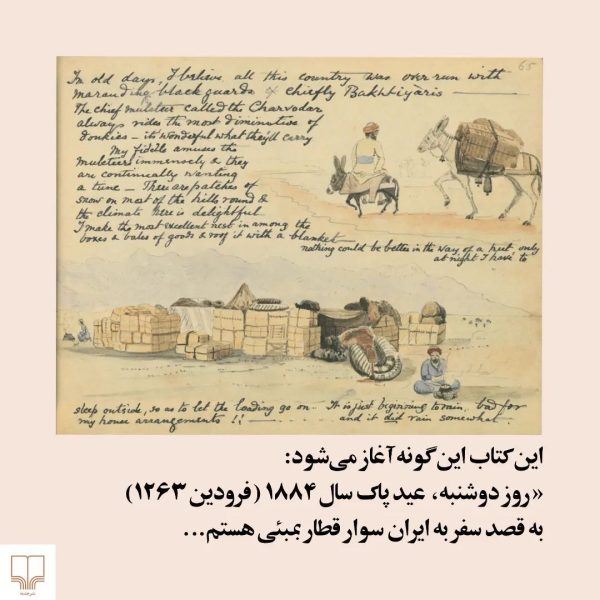 65
In old days, I believe all this country was over run with
marauding blackguards & chiefly Bakhtiyaris
The chief muleteer called the Charvodar
always rides the most diminutive of
donkies - its wonderful what they'll carry
My fiddle amuses the
muleteers immensely & they
are continually wanting
a tune - There are patches of
snow on most of the hills round &
the climate here is delightful
I make the most excellent nest in among the
boxes & bales of goods & roof it with a blanket
nothing could be better in the way of a hut, only
at night I have to
sleep outside, so as to let the loading go on .. It is just beginning to rain, bad for
my house arrangements !! and it did rain somewhat.
این کتاب این‌گونه آغاز می‌شود:
«روز دوشنبه، عید پاک سال ۱۸۸۴ (فرودین ۱۲۶۳)
به قصد سفر به ایران سوار قطار بمبئی هستم...
نشرچشمه